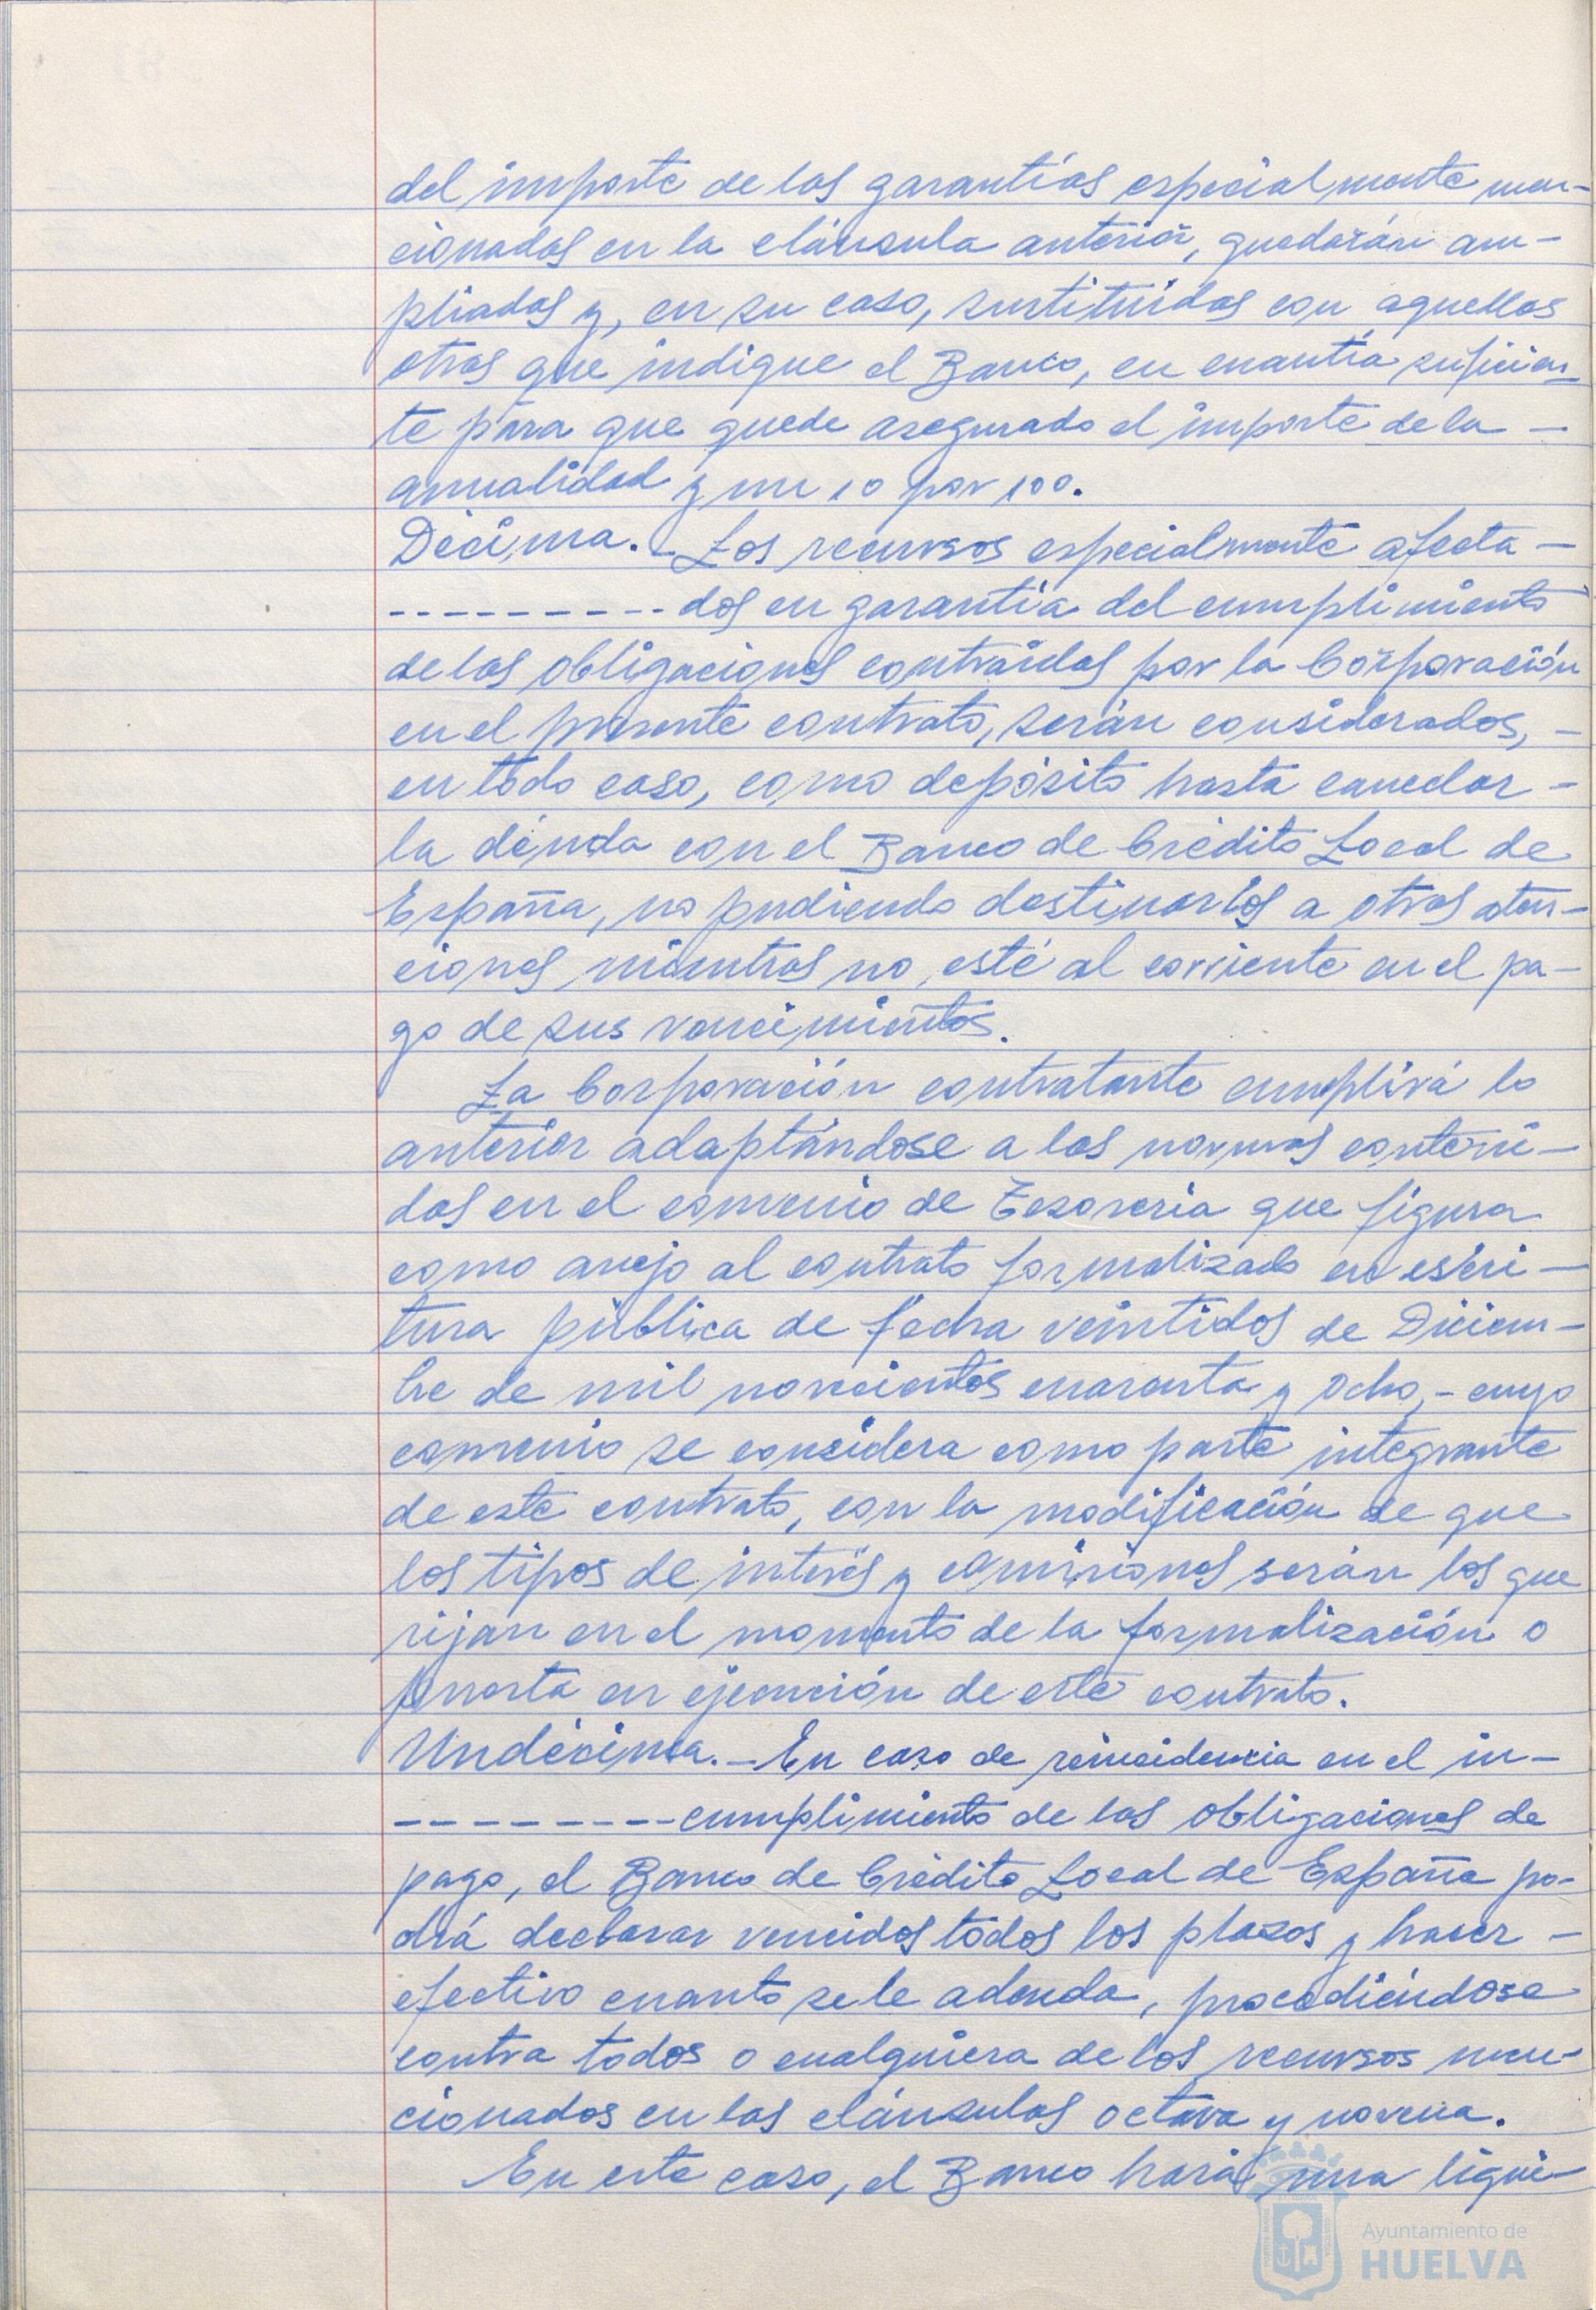 del importe de las garantías especialmente men-
cionadas en la cláusula anterior, quedarán am-
pliadas y, en su caso, sustituídas con aquellas
otras que indique el Banco, en cuantía suficien-
te para que quede asegurado el importe de la -
anualidad y un 10 por 100.
Décima.- Los recursos especialmente afecta-
--------- dos en garantía del cumplimiento
de las obligaciones contraídas por la Corporación
en el presente contrato, serán considerados, -
en todo caso, como depósito hasta cancelar -
la deuda con el Banco de Crédito Local de
España, no pudiendo destinarlos a otras aten-
ciones mientras no esté al corriente en el pa-
go de sus vencimientos.
La Corporación contratante cumplirá lo
anterior adaptándose a las normas conteni-
das en el convenio de Tesorería que figura
como anejo al contrato formalizado en escri-
tura pública de fecha veintidos de Diciem-
bre de mil novecientos cuarenta y ocho,- cuyo
convenio se considera como parte integrante
de este contrato, con la modificación de que
los tipos de interés y comisiones serán los que
rijan en el momento de la formalización o
puesta en ejecución de este contrato.
Undécima.- En caso de reincidencia en el in-
--------- cumplimiento de las obligaciones de
pago, el Banco de Crédito Local de España po-
drá declarar vencidos todos los plazos y hacer -
efectivo cuanto se le adeuda, procediéndose
contra todos o cualquiera de los recursos men-
cionados en las cláusulas octava y novena.
En este caso, el Banco hará una liqui-
Ayuntamiento de
HUELVA